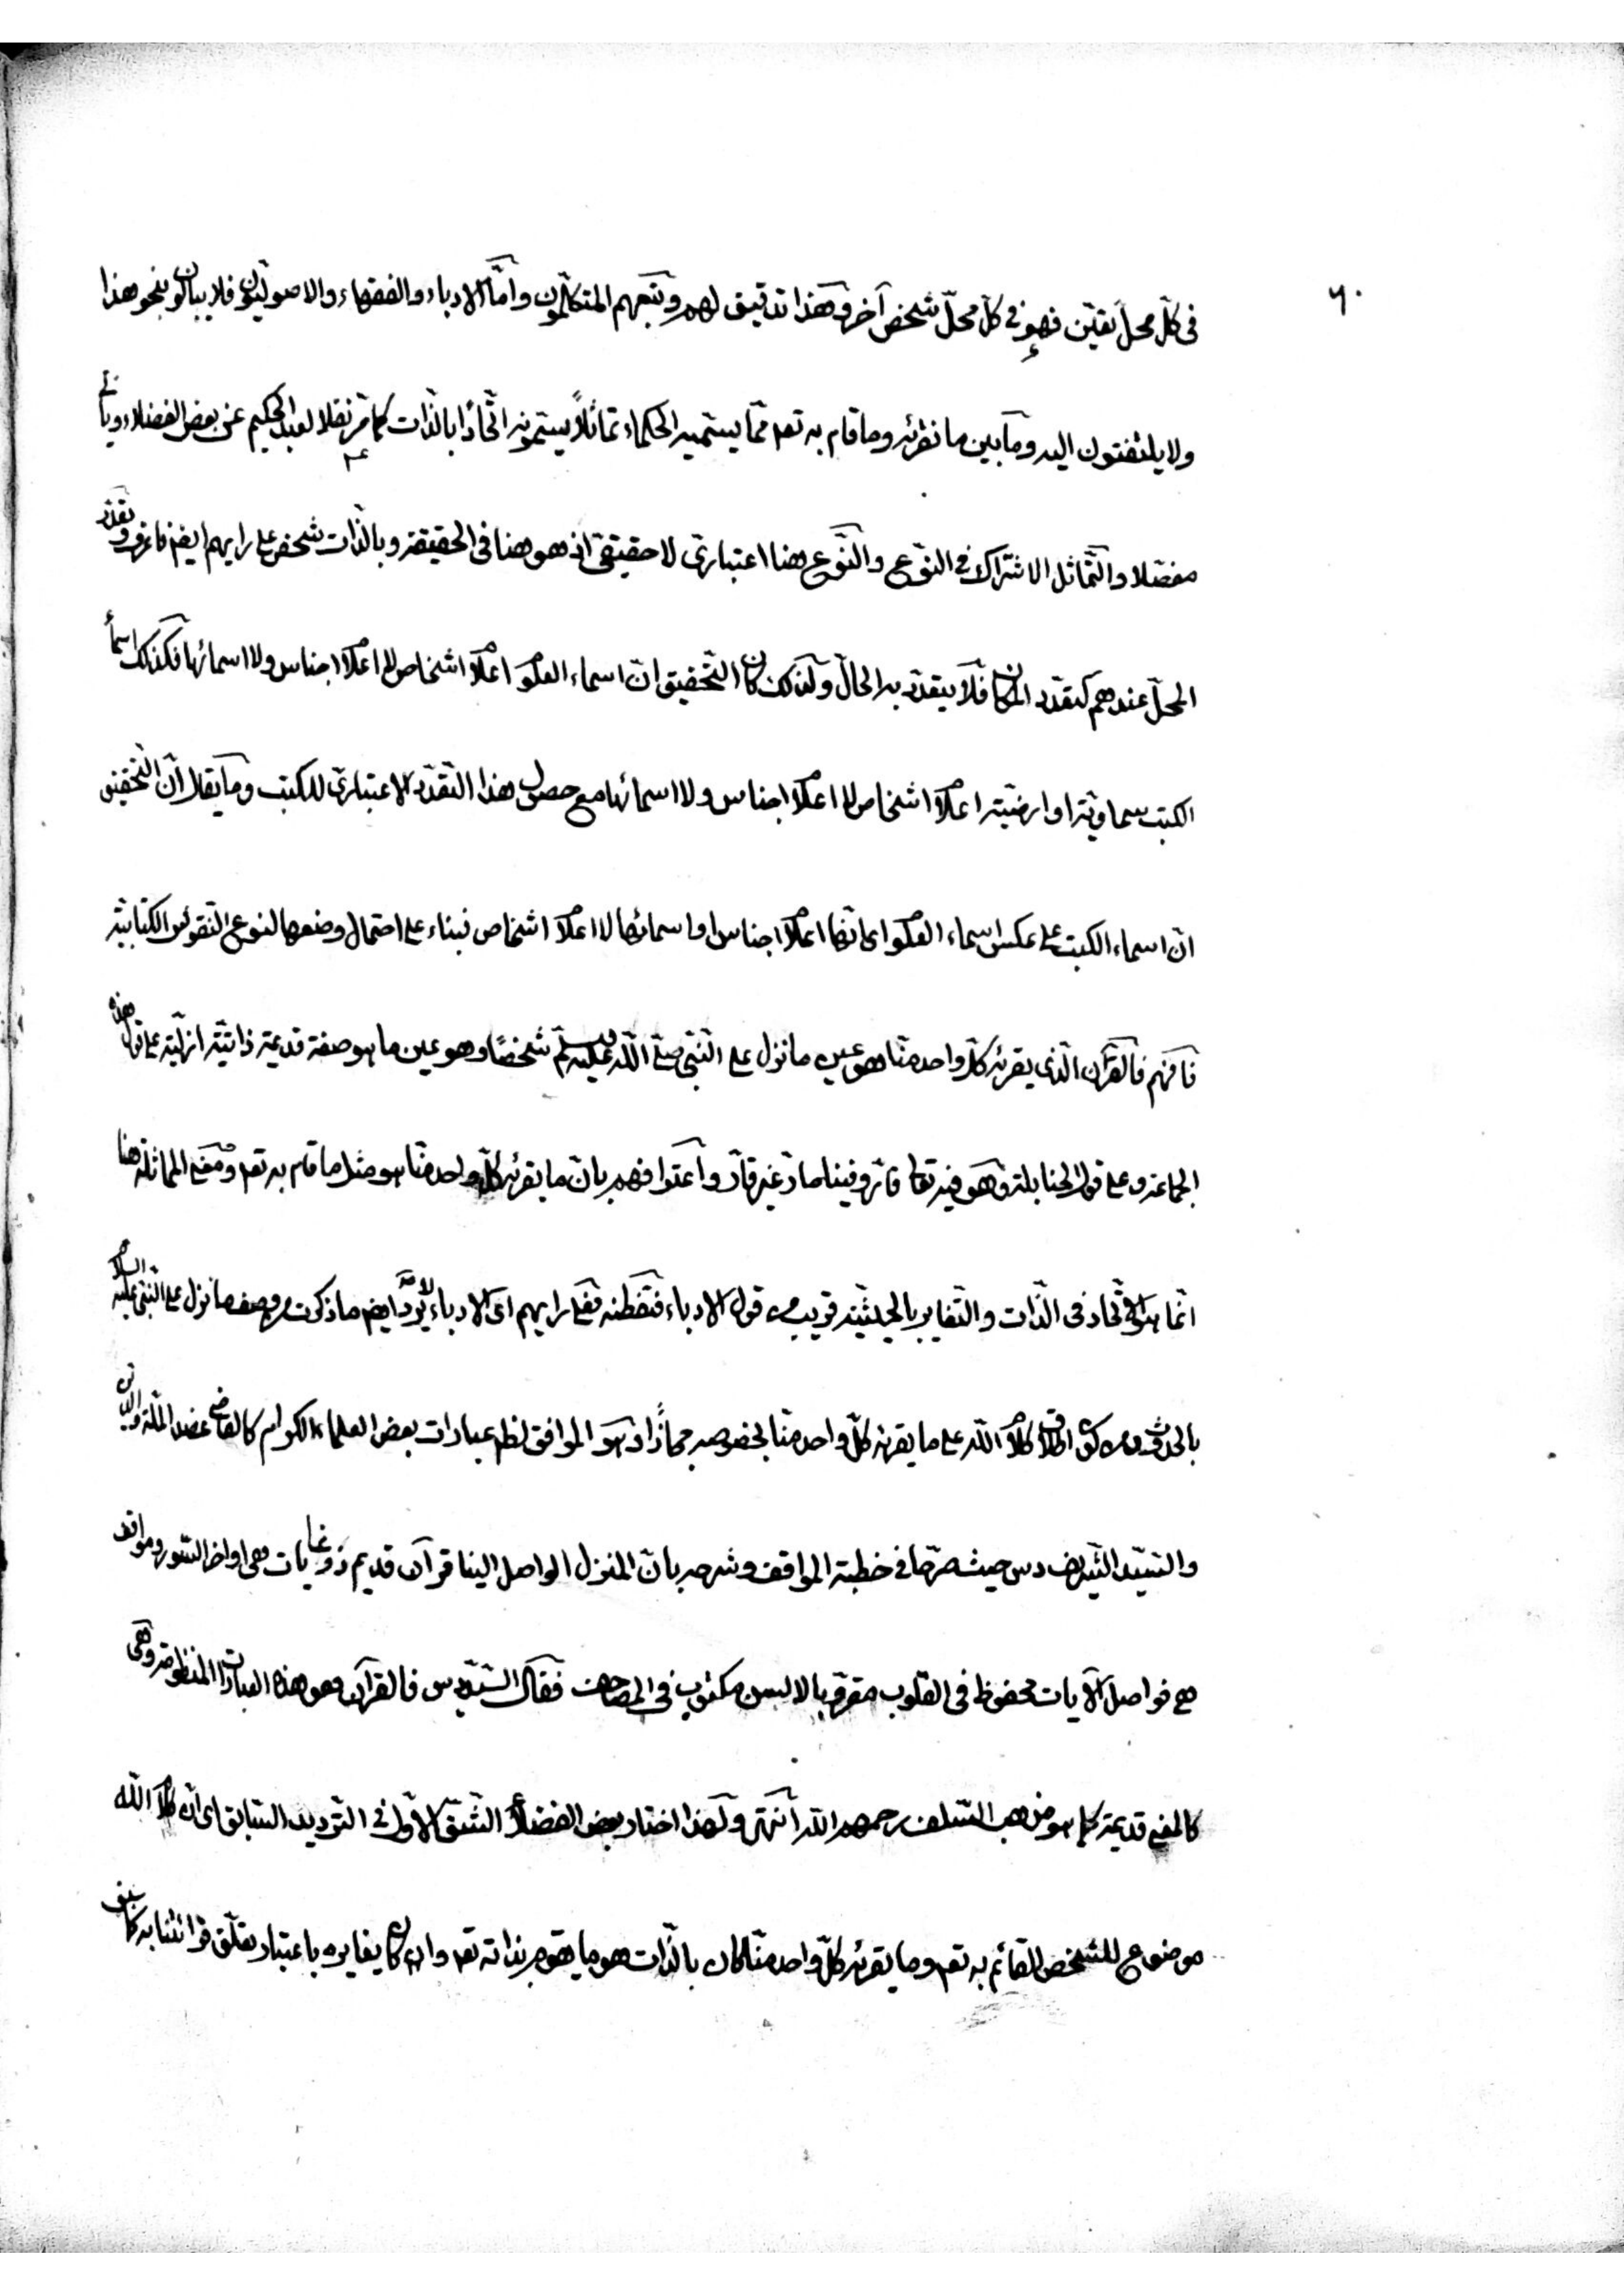 ٦٠
فى كلّ محلّ تعيّن فهو فى كلّ محلّ شخص آخر وهذا تدقيق لهم وتبعهم المتكلّمون وامّا الادباء والفقهاء والاصوليّون فلا يبالون بنحو هذا
ولا يلتفتون اليه وما بين ما نقرئه وما قام به تعـ ممّا يسمّيه الحكماء تماثلاً يسمّونه اتّحادًا بالذّات كما مرّ نقلا لعبد الحكيم عن بعض الفضلاء ويأتى
مفصّلا والتّماثل الاشتراك فى النّوع والنّوع هنا اعتبارىّ لا حقيقىّ اذ هو هنا فى الحقيقة وبالذّات شخص على رايهم ايضـ فاعرف وتعدّد
المحلّ عندهم كتعدّد المكان فلا يتعدّد به الحالّ ولذلك كان التّحقيق انّ اسماء العلوم اعلام اشخاص لا اعلام اجناس ولا اسمائها فكذلك اسمأ
الكتب سماويّة او ارضيّة اعلام اشخاص لا اعلام اجناس ولا اسمائها مع حصول هذا التّعدّد الاعتبارىّ للكتب وما يقال انّ التّحقيق
انّ اسماء الكتب على عكس اسماء العلوم اى انّها اعلام اجناس او اسمائها لا اعلام اشخاص فبناء على احتمال وضعها لنوع النّقوش الكتابيّة
فافهم فالقرآن الّذى يقرئه كلّ واحد منّا هو عين ما نزل على النّبىّ صلّى اللّه عليه وسلّم شخصًا وهو عين ما هو صفة قديمة ذاتيّة ازليّة على قول هذه
الجماعة وعلى قول الحنابلة وهو فيه تعالى قارّ وفينا صار غير قارّ واعترافهم بانّ ما يقرئه كلّ واحد منّا هو مثل ما قام به تعـ ومعنى المماثلة هنا
انّما هو الاتّحاد فى الذّات والتّغاير بالحيثيّة قريب من قول الادباء فتفطّنه فعلى رايهم اى الادباء لا يردّ ايضـ ما ذكرت من وصف ما نزل على النّبىّ عليه السلام
بالحدوث ومن كون اطلاق كلام اللّه على ما يقرئه كلّ واحد منّا بخصوصه مجازًا وهو الموافق لظم عبارات بعض العلماء الكرام كالقاضى عضد الملّة والدّين
والسّيّد الشّريف دس حيث صرّحا فى خطبة المواقف وشرحه بانّ المنزل الواصل الينا قرآن قديم ذو غايات هى اواخر السّور ومواقف
هى فواصل الآيات محفوظ فى القلوب مقروّ بالالسن مكتوب فى المصاحف فقال السّيّد دس فالقرآن وهو هذه العبارات المنظومة وهى
كالمعنى قديمة كما هو مذهب السّلف رحمهم اللّه انتهى ولهذا اختار بعض الفضلأ الشّقّ الاوّل فى التّرديد السّابق اى انّ كلام اللّه
موضوع للشّخص القائم به تعـ وما يقرئه كلّ واحد منّا كان بالذّات هو ما يقوم بذاته تعـ وان كان يغايره باعتبار تعلّق قرائتنا به كما سبق